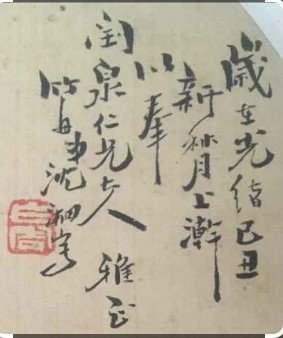 歲在光緒己丑
新秋月上澣
以奉
閏泉仁兄大人 雅正
竹 弟沈泗